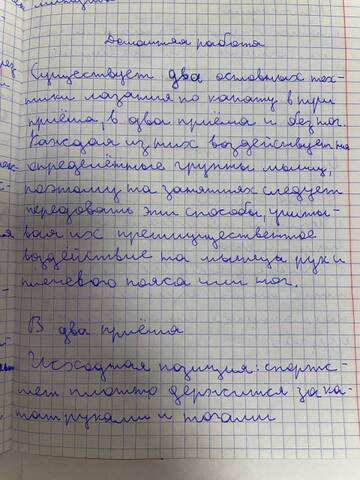 Домашняя работа
Существует два основных тех-
ники лазания по канату в три
приёма, в два приёма и без ног.
Каждая из них воздействует на
определённые группы мышц,
поэтому на занятиях следует
чередовать эти способы, учиты-
вая их преимущественное
воздействие на мышцы рук и
плечевого пояса или ног.
В два приёма
Исходная позиция: спортс-
мен плотно держится за ка-
нат руками и ногами